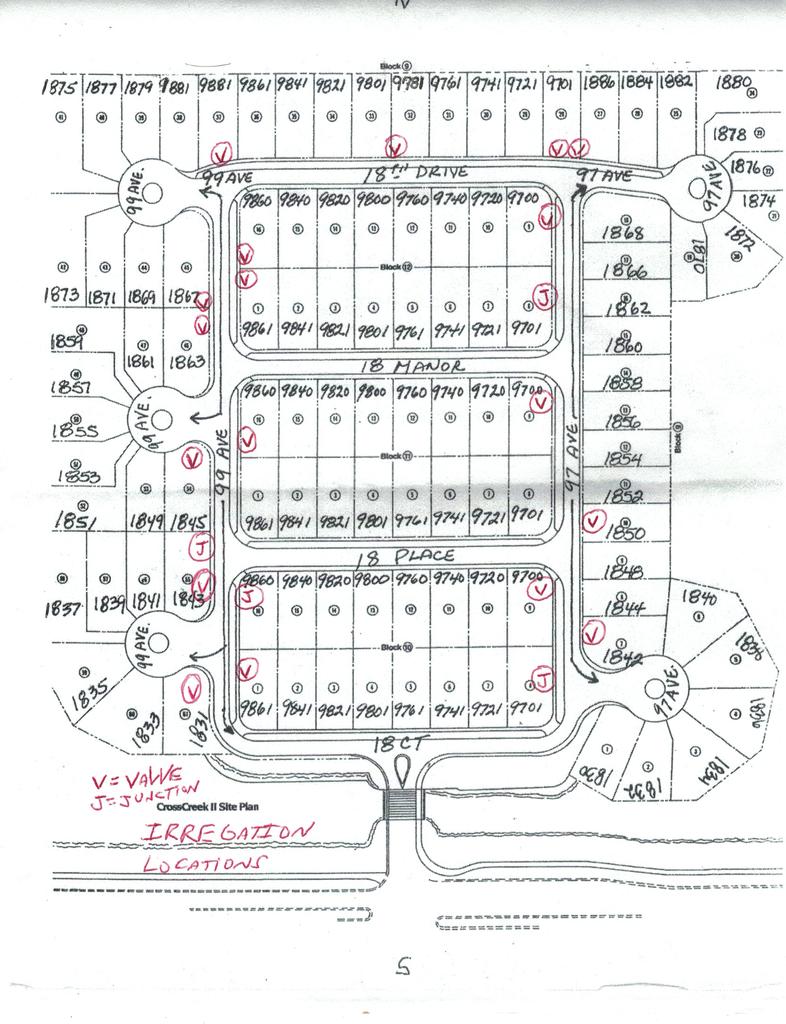 N
Block 9
1875 1877 1879 9881 9881 9861 9841 9821 9801 9781 9761 9741 9721 9701 1886 1884 1882 1880
1878
V V V V
18TH DRIVE
99 AVE 97 AVE
99 AVE. 97 AVE
1876
1874
1872
1870
9860 9840 9820 9800 9760 9740 9720 9700
V
1868
V
V
Block 12
1866
1873 1871 1869 1867
V
V
J
1862
9861 9841 9821 9801 9761 9741 9721 9701
1859
1861 1863
1860
18 MANOR
1857
1858
99 AVE.
9860 9840 9820 9800 9760 9740 9720 9700
V
1855
1856
V
1853
V
99 AVE
Block 11
97 AVE
1854
Block 9
1852
1851 1849 1845
9861 9841 9821 9801 9761 9741 9721 9701
V
1850
J
18 PLACE
1848
1837 1839 1841 1843
V
9860 9840 9820 9800 9760 9740 9720 9700
J
V
1844
1840
99 AVE.
Block 10
V
1842
1838
1835
V
V
J
97 AVE.
1836
1833
1831
9861 9841 9821 9801 9761 9741 9721 9701
18 CT
1830
1832
1834
V = VALVE
J = JUNCTION
CrossCreek II Site Plan
IRREGATION
LOCATIONS
S